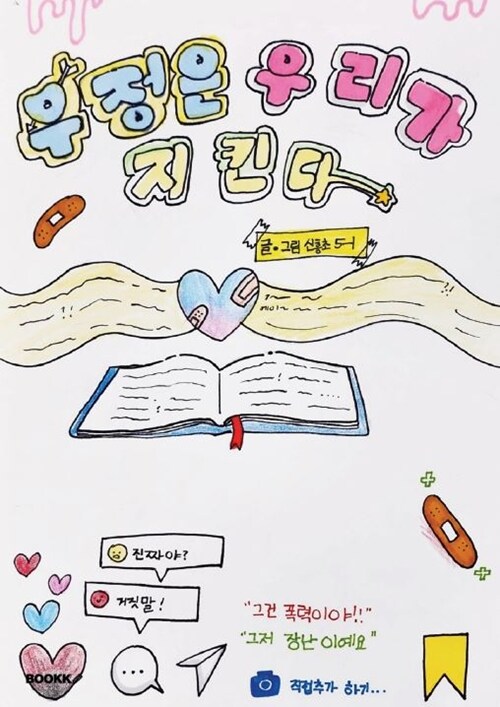 우정은 우리가
지킨다
글·그림 신흥초 5-1
진짜야?
거짓말!
"그건 폭력이야!!"
"그저 장난 이예요"
직접추가 하기...
BOOKK